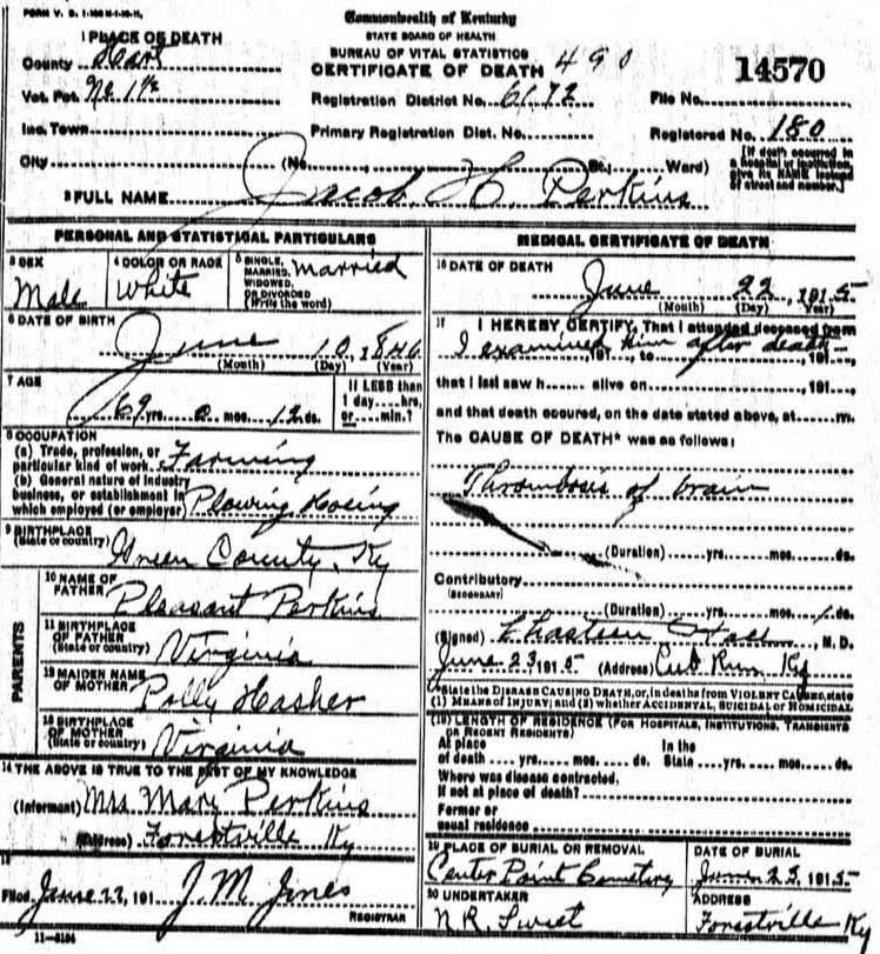 Commonwealth of Kentucky
STATE BOARD OF HEALTH
BUREAU OF VITAL STATISTICS
CERTIFICATE OF DEATH 490
14570
1 PLACE OF DEATH
County Hart
Vot. Pct. No 1
Registration District No. 6172
File No.
Inc. Town
Primary Registration Dist. No.
Registered No. 180
City (No. St.; Ward)
[If death occurred in a hospital or institution, give its NAME instead of street and number.]
2 FULL NAME Jacob H. Perkins
PERSONAL AND STATISTICAL PARTICULARS
3 SEX Male
4 COLOR OR RACE White
5 SINGLE, MARRIED, WIDOWED, OR DIVORCED (Write the word) Married
6 DATE OF BIRTH
June 10, 1846
(Month) (Day) (Year)
7 AGE
69 yrs. 0 mos. 12 ds.
If LESS than
1 day....hrs.
or....min.?
8 OCCUPATION
(a) Trade, profession, or
particular kind of work Farming
(b) General nature of industry
business, or establishment in
which employed (or employer) Plowing Hoeing
9 BIRTHPLACE
(State or country) Green County, Ky
PARENTS
10 NAME OF
FATHER Pleasant Perkins
11 BIRTHPLACE
OF FATHER
(State or country) Virginia
12 MAIDEN NAME
OF MOTHER Polly Hasher
13 BIRTHPLACE
OF MOTHER
(State or country) Virginia
14 THE ABOVE IS TRUE TO THE BEST OF MY KNOWLEDGE
(Informant) Mrs Mary Perkins
(Address) Forestville Ky
15
Filed June 22, 191 J. M. Jines
REGISTRAR
11-3184
MEDICAL CERTIFICATE OF DEATH
16 DATE OF DEATH
June 22, 1915
(Month) (Day) Year)
17 I HEREBY CERTIFY, That I attended deceased from
I examined him after death
191, to 191,
that I last saw h alive on, 191,
and that death occured, on the date stated above, at m.
The CAUSE OF DEATH* was as follows:
Thrombosis of brain
(Duration) yrs. mos. ds.
Contributory
(SECONDARY)
(Duration) yrs. mos. 1 ds.
(Signed) Chasteen, M. D.
June 23, 1915 (Address) Cub Run, Ky
*State the DISEASE CAUSING DEATH, or, in deaths from VIOLENT CAUSES, state
(1) MEANS of INJURY; and (2) whether ACCIDENTAL, SUICIDAL or HOMICIDAL
(18) LENGTH OF RESIDENCE (FOR HOSPITALS, INSTITUTIONS, TRANSIENTS
OR RECENT RESIDENTS)
At place In the
of death yrs. mos. ds. State yrs. mos. ds.
Where was disease contracted,
if not at place of death?
Former or
usual residence
19 PLACE OF BURIAL OR REMOVAL
Center Point Cemetery
DATE OF BURIAL
June 23, 1915
20 UNDERTAKER
N.R. Sweet
ADDRESS
Forestville Ky